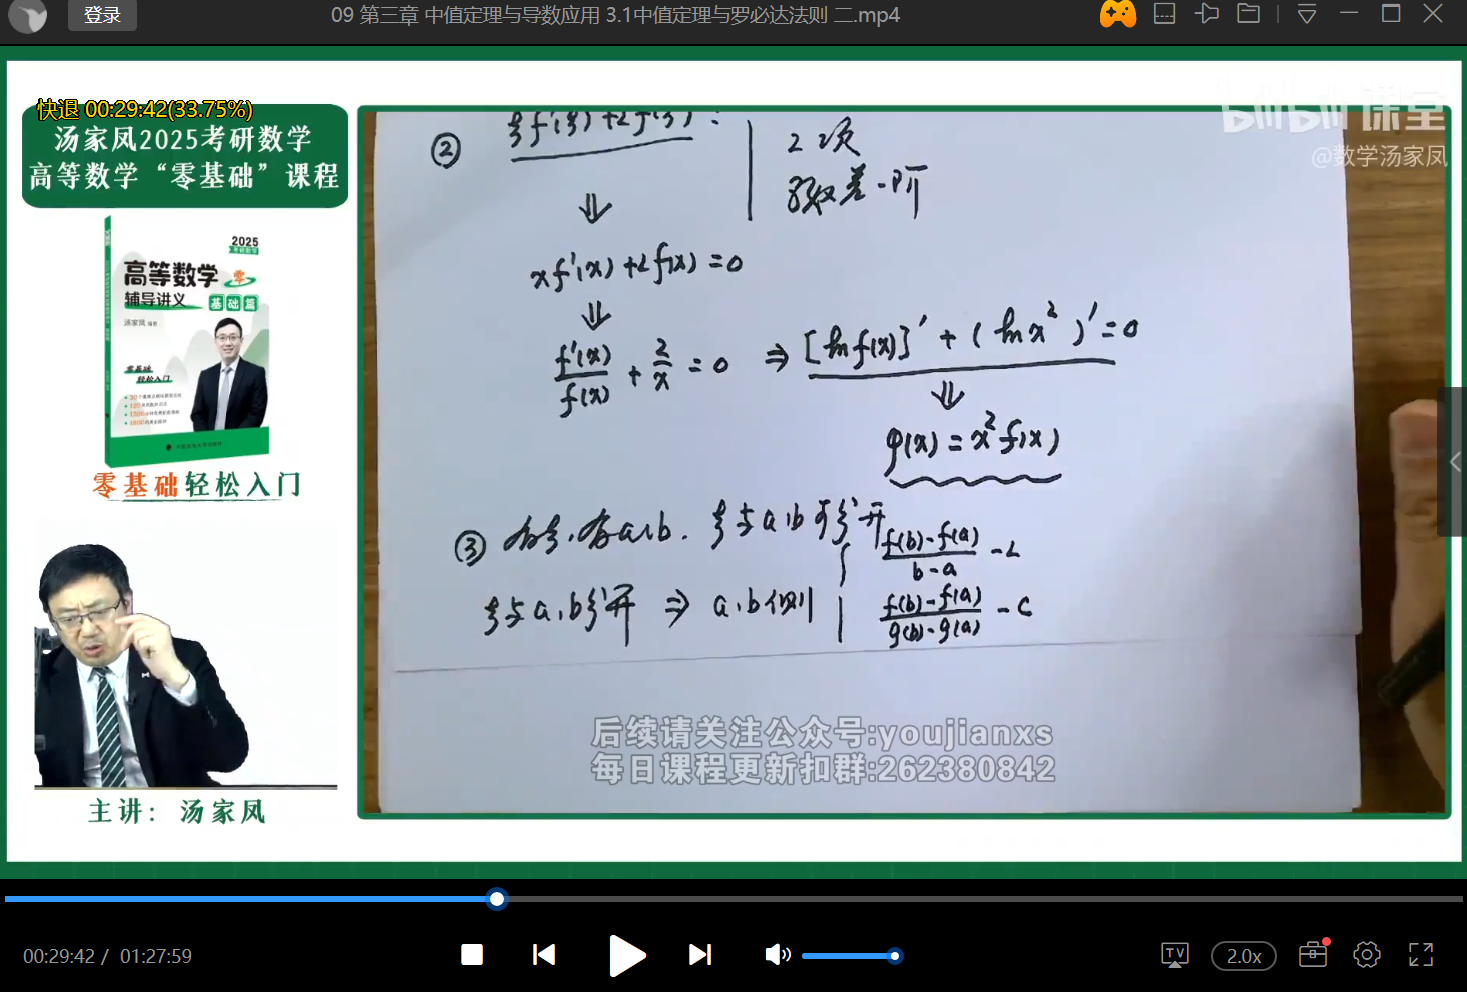 登录
09 第三章 中值定理与导数应用 3.1中值定理与罗必达法则 二.mp4
快退 00:29:42(33.75%)
汤家凤2025考研数学
高等数学“零基础”课程
2025
高等数学 零
辅导讲义 基础篇
汤家凤
零基础
轻松入门
零基础轻松入门
主讲：汤家凤
bilibili 课堂
@数学汤家凤
② ξf'(ξ)+2f(ξ):
2项
导数差一阶
⇓
xf'(x)+2f(x)=0
⇓
f'(x)/f(x) + 2/x = 0 ⇒ [ln f(x)]' + (ln x²)' = 0
⇓
φ(x)=x²f(x)
③ 有ξ,有a,b. ξ与a,b可分开
ξ与a,b分开 ⇒ a,b侧
(f(b)-f(a))/(b-a) - L
(f(b)-f(a))/(g(b)-g(a)) - C
后续请关注公众号:youjianxs
每日课程更新扣群:262380842
00:29:42 / 01:27:59
TV
2.0x